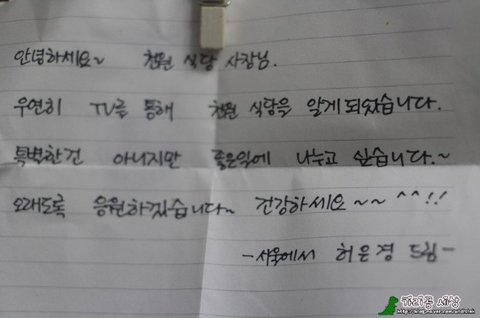 안녕하세요~ 천원 식당 사장님.
우연히 TV를 통해 천원 식당을 알게되었습니다.
특별한건 아니지만 좋은일에 나누고 싶습니다.~
오래도록 응원하겠습니다~ 건강하세요~~ ^^!!
-서울에서 허은경 드림-